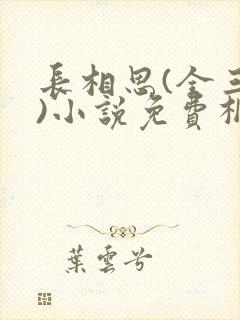 長相思(全三
)小說免費
葉雲兮